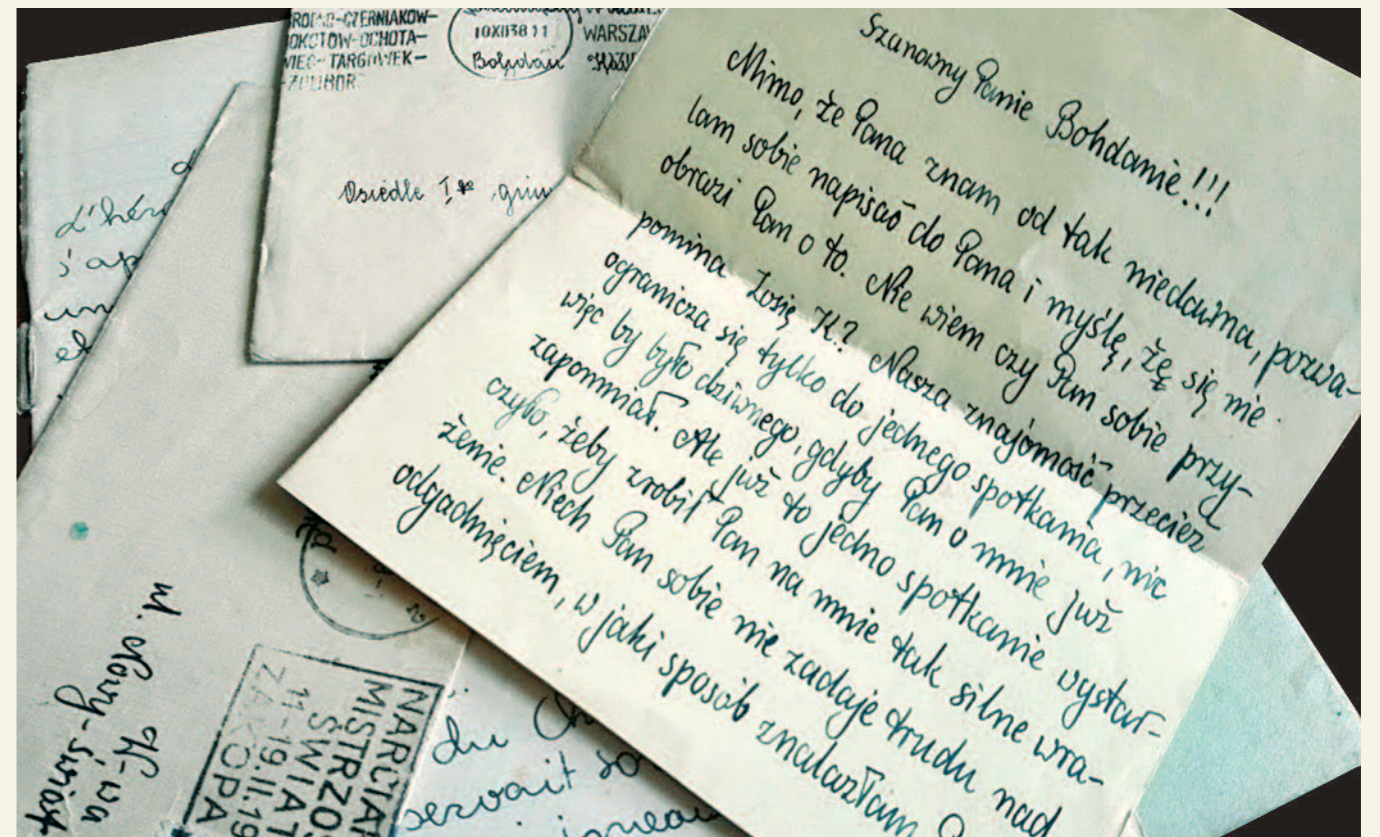 10XII38 11
WARSZA
OCHOTA-
TARGÓWEK-
Bohdan
Osiedle I
d'hér
s'ap
un
et
Szanowny Panie Bohdanie!!!
Mimo, że Pana znam od tak niedawna, pozwa-
lam sobie napisać do Pana i myślę, żę się nie
obrazi Pan o to. Nie wiem czy Pan sobie przy-
pomina Zosię K? Nasza znajomość przecież
ogranicza się tylko do jednego spotkania, nic
więc by było dziwnego, gdyby Pan o mnie już
zapomniał. Ale już to jedno spotkanie wystar-
czyło, żeby zrobił Pan na mnie tak silne wra-
żenie. Niech Pan sobie nie zadaje trudu nad
odgadnięciem, w jaki sposób znalazłam
W-wa
ul.
NARCIAR
MISTRZOS
ŚWIAT
11-19.II.19
ZAKOPA
du Ch
servait